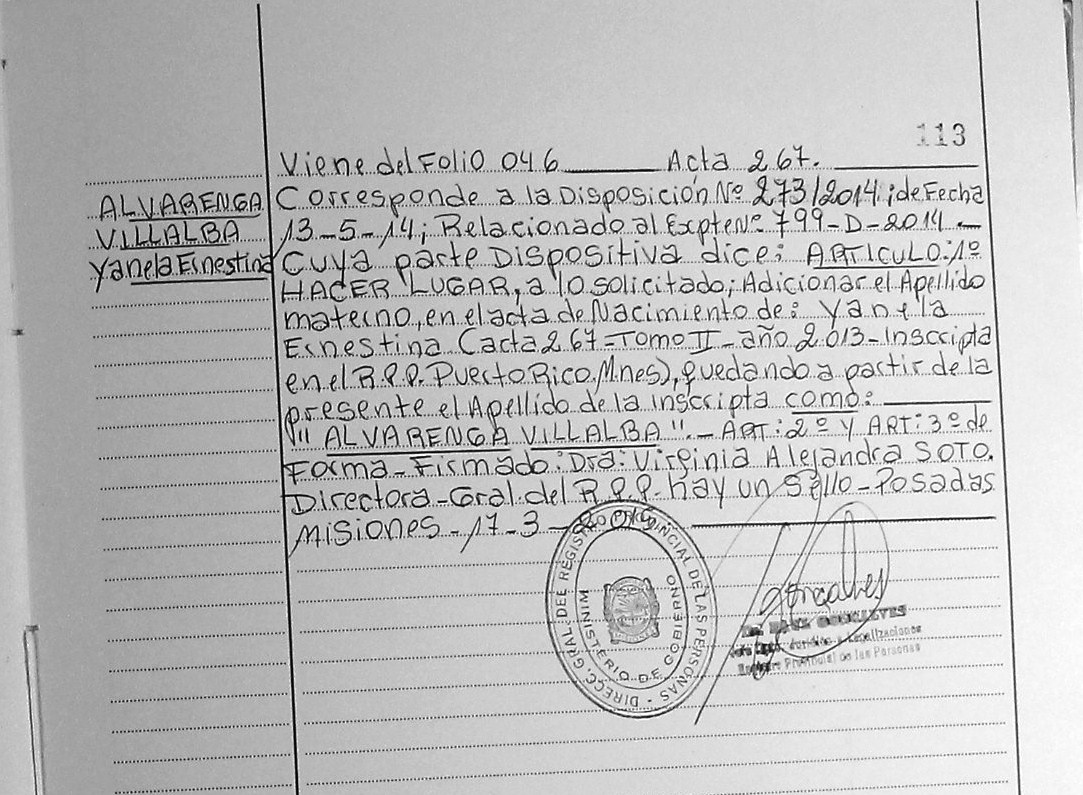 113
Viene del Folio 046 Acta 267.
ALVARENGA
VILLALBA
Yanela Ernestina
Corresponde a la Disposición Nº 273/2014; de Fecha
13-5-14; Relacionado al Expte Nº 799-D-2014.-
Cuya parte Dispositiva dice: ARTICULO: 1º
HACER LUGAR, a lo solicitado; Adicionar el Apellido
materno, en el acta de Nacimiento de: Yanela
Ernestina (acta 267=Tomo II-año 2013-Inscripta
en el R.P.P. Puerto Rico, Mnes), quedando a partir de la
presente el Apellido de la inscripta como:
"ALVARENGA VILLALBA".- ART: 2º y ART: 3º de
Forma-Firmado: Dra: Virginia Alejandra SOTO.
Directora-Gral. del R.P.P. hay un Sello-Posadas
Misiones-17-3-
DIRECC. GRAL. DEL REGISTRO PROVINCIAL DE LAS PERSONAS
MINISTERIO DE GOBIERNO
Goncalves
GONCALVES
Legalizaciones
Provincial de las Personas